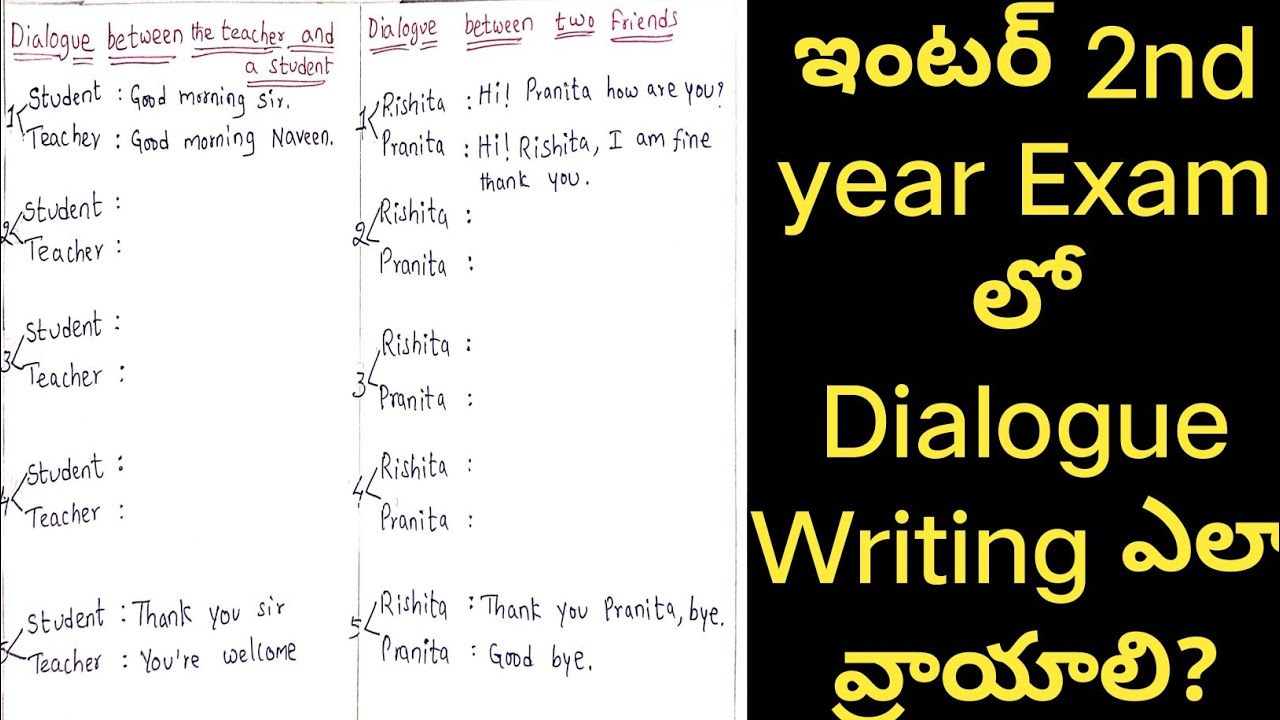 Dialogue between the teacher and
a student
1 Student : Good morning Sir.
Teacher : Good morning Naveen.
2 Student :
Teacher :
3 Student :
Teacher :
4 Student :
Teacher :
5 Student : Thank you sir
Teacher : You're welcome
Dialogue between two friends
1 Rishita : Hi! Pranita how are you?
Pranita : Hi! Rishita, I am fine
thank you.
2 Rishita :
Pranita :
3 Rishita :
Pranita :
4 Rishita :
Pranita :
5 Rishita : Thank you Pranita, bye.
Pranita : Good bye.
ఇంటర్ 2nd
year Exam
లో
Dialogue
Writing ఎలా
వ్రాయాలి?